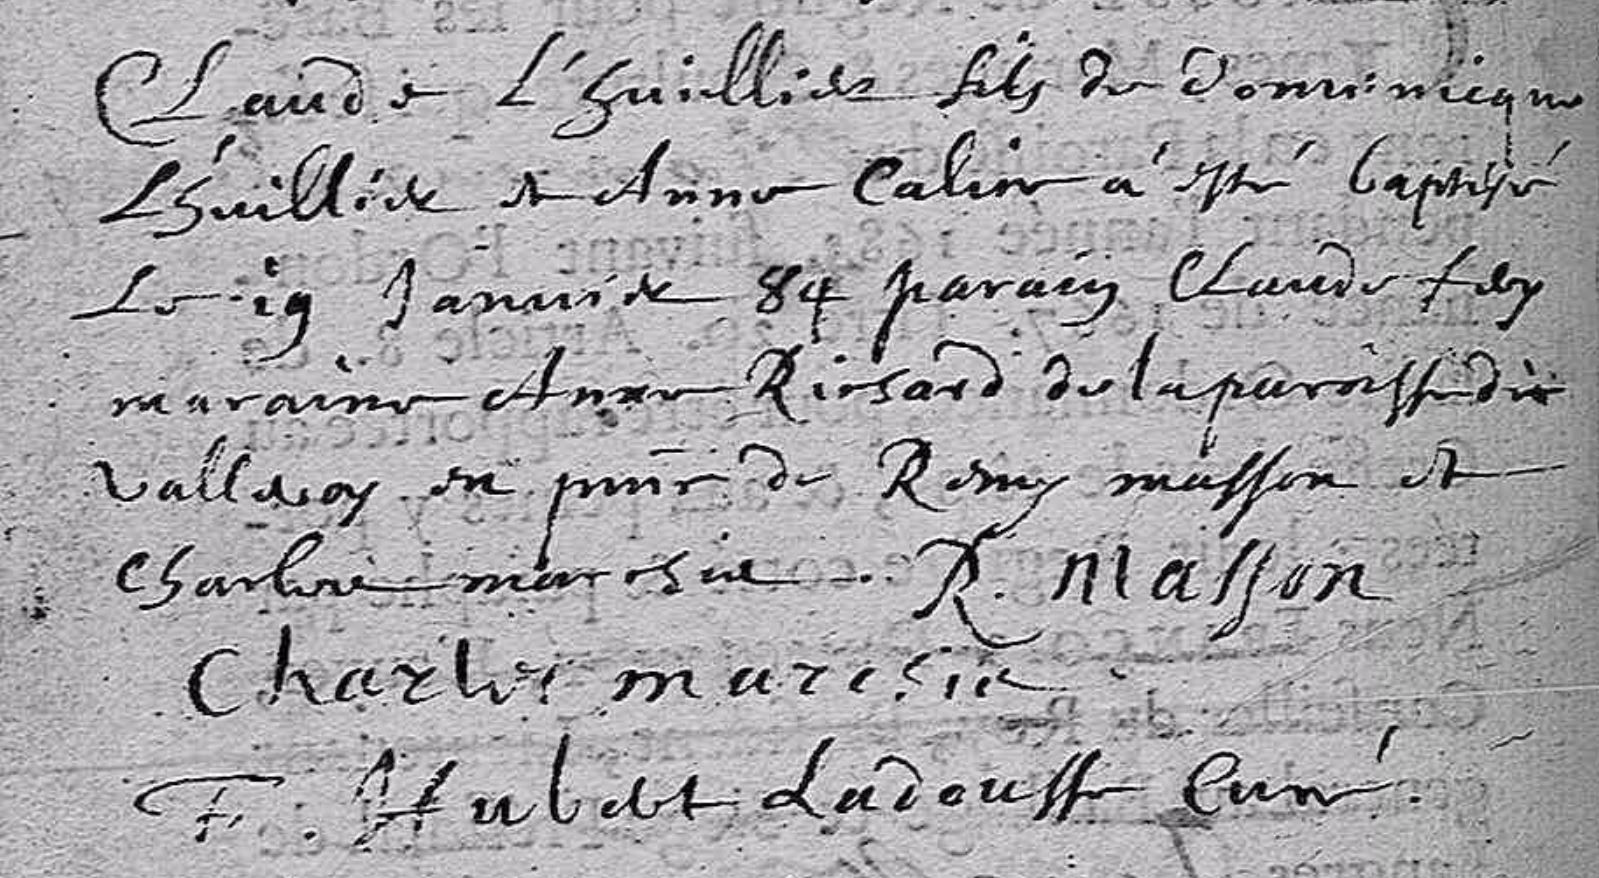 Claude L'huillier fils de Dominicque
L'huillier et Anne Caline a esté baptisé
Le 19 Janvier 84 parain Claude fery
maraine Anne Richard de la paroisse de
Valleroy en pnce de Remy masson et
Charles marchie R. Masson
Charles marchie
F. Hubert Ladousse Curé.